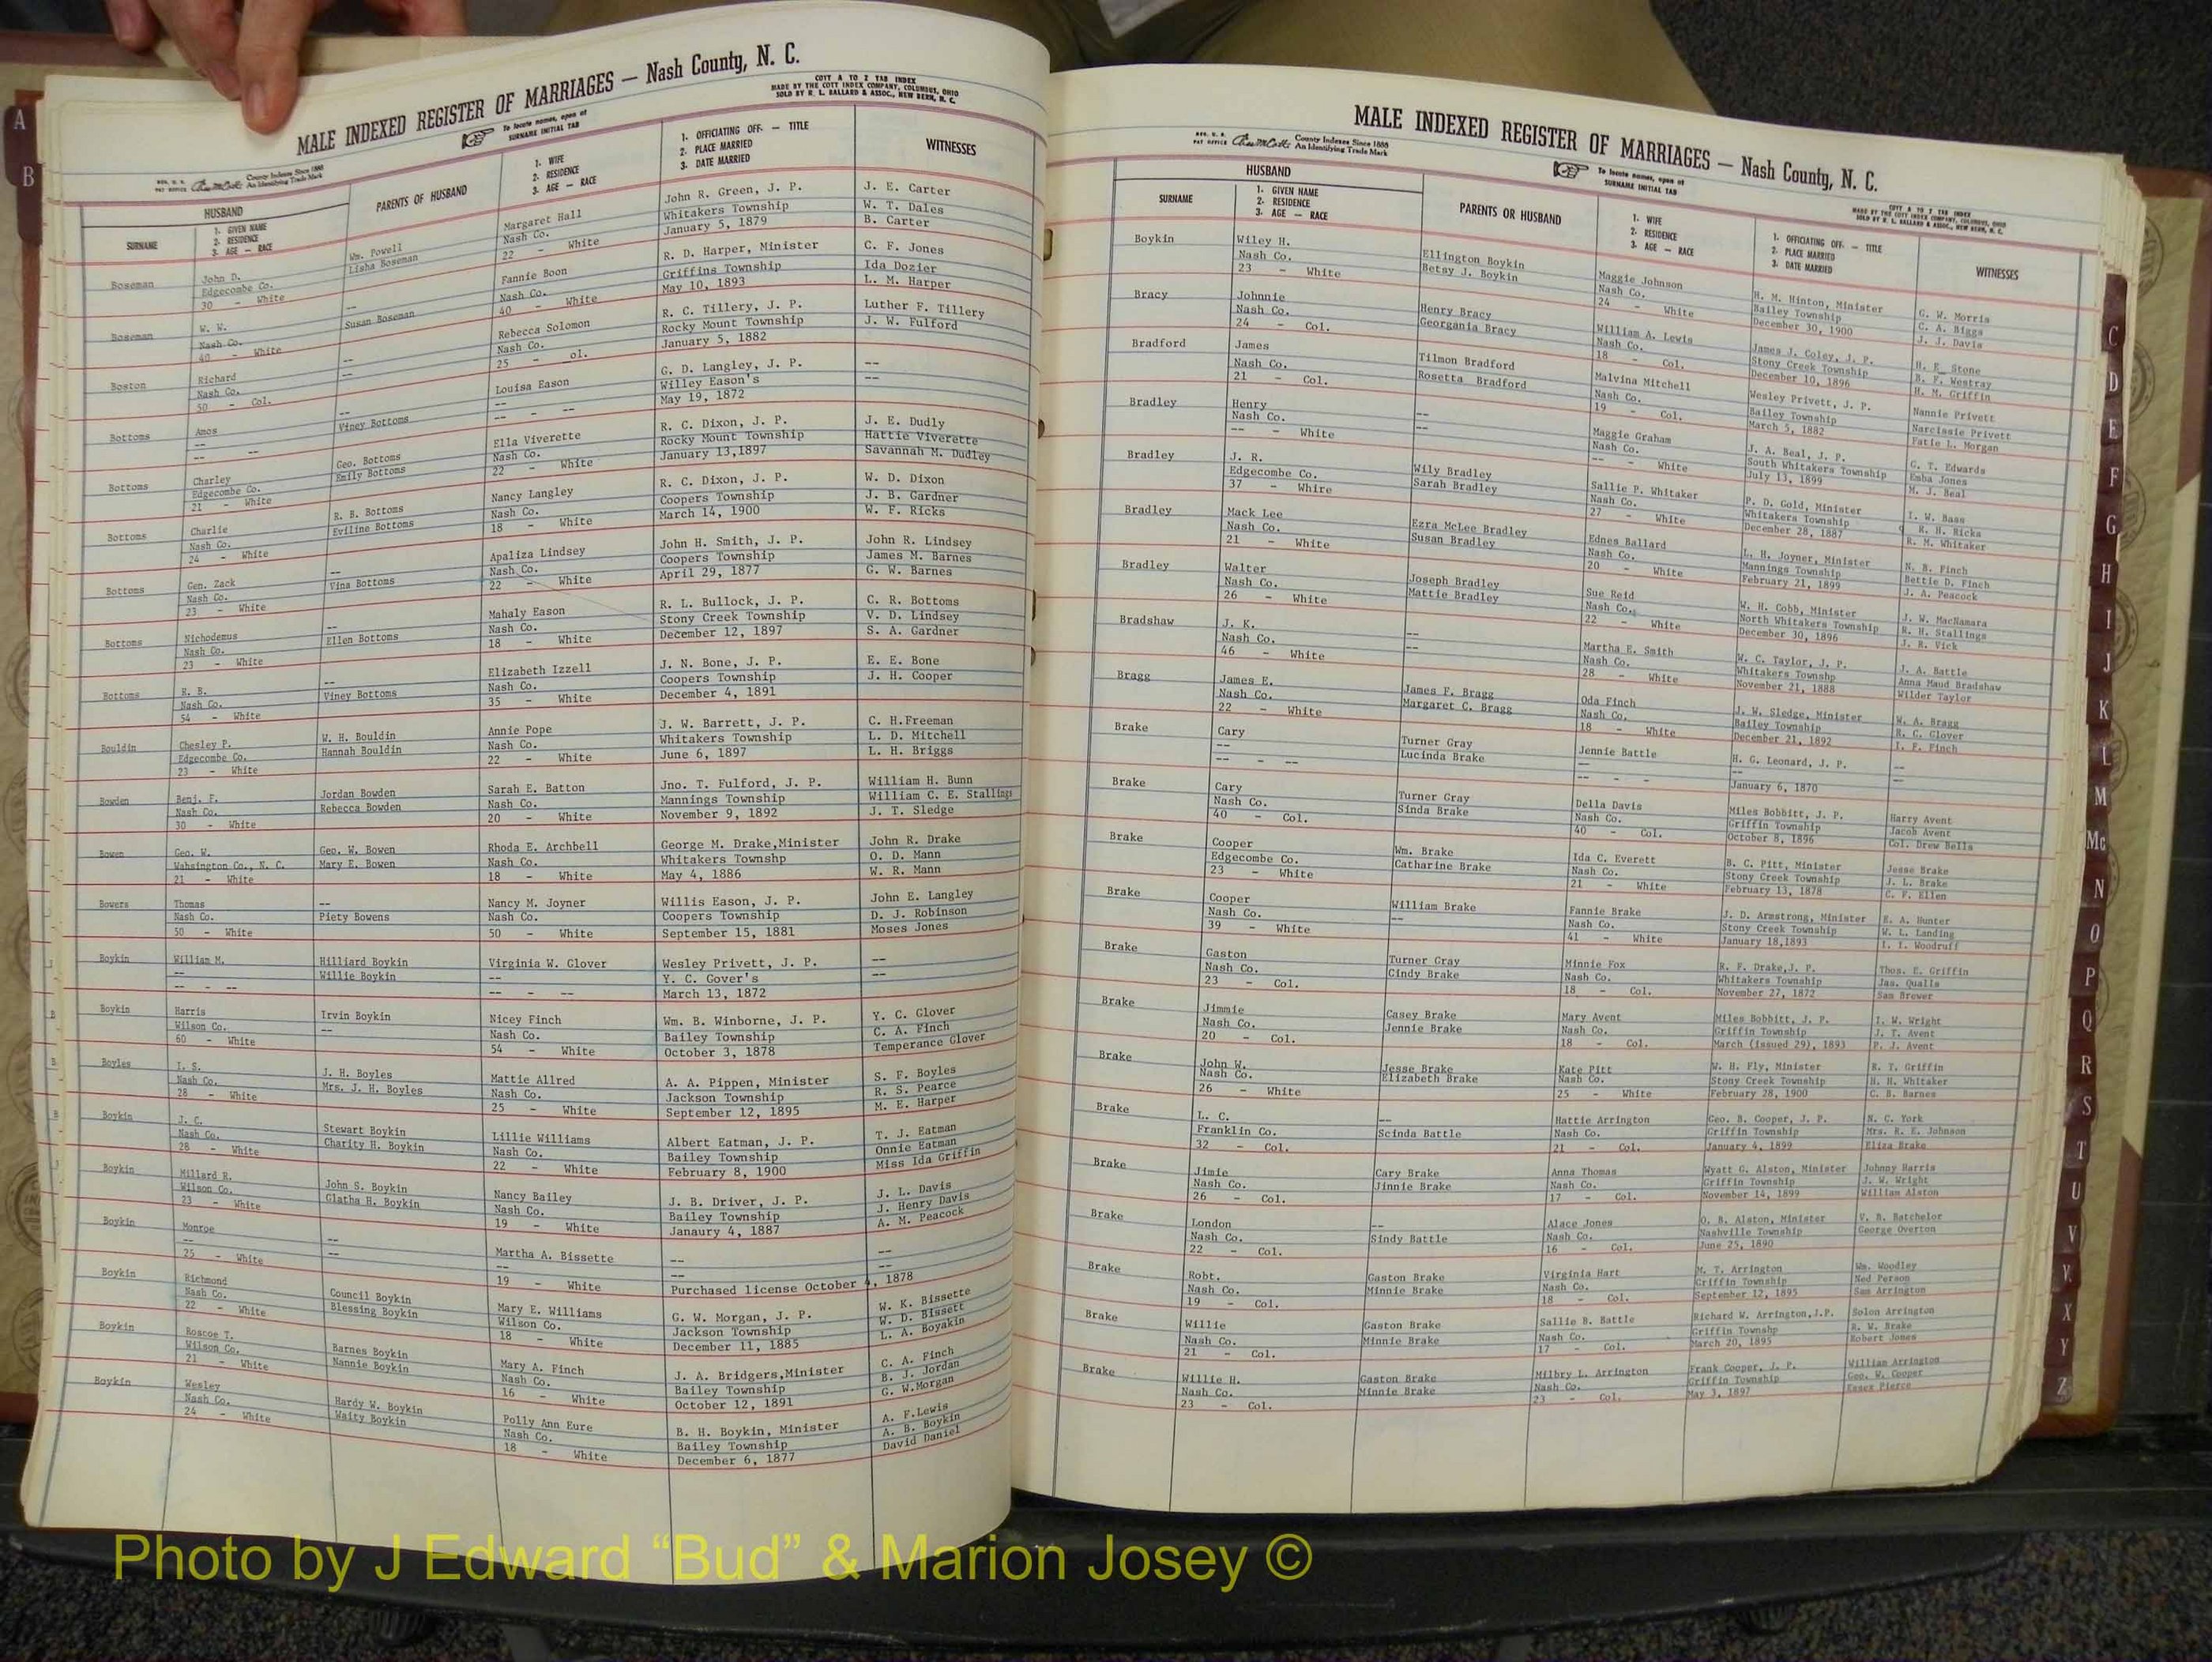 MALE INDEXED REGISTER OF MARRIAGES — Nash County, N. C.
COTT A TO Z TAB INDEX
MADE BY THE COTT INDEX COMPANY, COLUMBUS, OHIO
SOLD BY R. L. BALLARD & ASSOC., NEW BERN, N. C.
To locate names, open at
SURNAME INITIAL TAB
County Indexes Since 1888
An Identifying Trade Mark
HUSBAND
SURNAME
1. GIVEN NAME
2. RESIDENCE
3. AGE — RACE
PARENTS OF HUSBAND
1. WIFE
2. RESIDENCE
3. AGE — RACE
1. OFFICIATING OFF. — TITLE
2. PLACE MARRIED
3. DATE MARRIED
WITNESSES
Boseman John D. Wm. Powell Margaret Hall John R. Green, J. P. J. E. Carter
Edgecombe Co. Lisha Boseman Nash Co. Whitakers Township W. T. Dales
30 - White 22 - White January 5, 1879 B. Carter
Boseman W. W. -- Fannie Boon R. D. Harper, Minister C. F. Jones
Nash Co. Susan Boseman Nash Co. Griffins Township Ida Dozier
40 - White 40 - White May 10, 1893 L. M. Harper
Boston Richard -- Rebecca Solomon R. C. Tillery, J. P. Luther F. Tillery
Nash Co. -- Nash Co. Rocky Mount Township J. W. Fulford
50 - Col. 25 - ol. January 5, 1882
Bottoms Amos -- Louisa Eason G. D. Langley, J. P. --
-- Viney Bottoms -- Willey Eason's --
-- -- -- - -- May 19, 1872
Bottoms Charley Geo. Bottoms Ella Viverette R. C. Dixon, J. P. J. E. Dudly
Edgecombe Co. Emily Bottoms Nash Co. Rocky Mount Township Hattie Viverette
21 - White 22 - White January 13,1897 Savannah M. Dudley
Bottoms Charlie R. B. Bottoms Nancy Langley R. C. Dixon, J. P. W. D. Dixon
Nash Co. Eviline Bottoms Nash Co. Coopers Township J. B. Gardner
24 - White 18 - White March 14, 1900 W. F. Ricks
Bottoms Gen. Zack -- Apaliza Lindsey John H. Smith, J. P. John R. Lindsey
Nash Co. Vina Bottoms Nash Co. Coopers Township James M. Barnes
23 - White 22 - White April 29, 1877 G. W. Barnes
Bottoms Nichodemus -- Mahaly Eason R. L. Bullock, J. P. C. R. Bottoms
Nash Co. Ellen Bottoms Nash Co. Stony Creek Township V. D. Lindsey
23 - White 18 - White December 12, 1897 S. A. Gardner
Bottoms R. B. -- Elizabeth Izzell J. N. Bone, J. P. E. E. Bone
Nash Co. Viney Bottoms Nash Co. Coopers Township J. H. Cooper
54 - White 35 - White December 4, 1891
Bouldin Chesley P. W. H. Bouldin Annie Pope J. W. Barrett, J. P. C. H.Freeman
Edgecombe Co. Hannah Bouldin Nash Co. Whitakers Township L. D. Mitchell
23 - White 22 - White June 6, 1897 L. H. Briggs
Bowden Benj. F. Jordan Bowden Sarah E. Batton Jno. T. Fulford, J. P. William H. Bunn
Nash Co. Rebecca Bowden Nash Co. Mannings Township William C. E. Stallings
30 - White 20 - White November 9, 1892 J. T. Sledge
Bowen Geo. W. Geo. W. Bowen Rhoda E. Archbell George M. Drake,Minister John R. Drake
Wahsington Co., N. C. Mary E. Bowen Nash Co. Whitakers Townshp O. D. Mann
21 - White 18 - White May 4, 1886 W. R. Mann
Bowers Thomas -- Nancy M. Joyner Willis Eason, J. P. John E. Langley
Nash Co. Piety Bowens Nash Co. Coopers Township D. J. Robinson
50 - White 50 - White September 15, 1881 Moses Jones
Boykin William M. Hilliard Boykin Virginia W. Glover Wesley Privett, J. P. --
-- Willie Boykin -- Y. C. Gover's --
-- - -- -- - -- March 13, 1872
Boykin Harris Irvin Boykin Nicey Finch Wm. B. Winborne, J. P. Y. C. Glover
Wilson Co. -- Nash Co. Bailey Township C. A. Finch
60 - White 54 - White October 3, 1878 Temperance Glover
Boyles I. S. J. H. Boyles Mattie Allred A. A. Pippen, Minister S. F. Boyles
Nash Co. Mrs. J. H. Boyles Nash Co. Jackson Township R. S. Pearce
28 - White 25 - White September 12, 1895 M. E. Harper
Boykin J. C. Stewart Boykin Lillie Williams Albert Eatman, J. P. T. J. Eatman
Nash Co. Charity H. Boykin Nash Co. Bailey Township Onnie Eatman
28 - White 22 - White February 8, 1900 Miss Ida Griffin
Boykin Millard R. John S. Boykin Nancy Bailey J. B. Driver, J. P. J. L. Davis
Wilson Co. Glatha H. Boykin Nash Co. Bailey Township J. Henry Davis
23 - White 19 - White Janaury 4, 1887 A. M. Peacock
Boykin Monroe -- Martha A. Bissette -- --
-- -- -- -- --
25 - White 19 - White Purchased license October 4, 1878
Boykin Richmond Council Boykin Mary E. Williams G. W. Morgan, J. P. W. K. Bissette
Nash Co. Blessing Boykin Wilson Co. Jackson Township W. D. Bissett
22 - White 18 - White December 11, 1885 L. A. Boyakin
Boykin Roscoe T. Barnes Boykin Mary A. Finch J. A. Bridgers,Minister C. A. Finch
Wilson Co. Nannie Boykin Nash Co. Bailey Township B. J. Jordan
21 - White 16 - White October 12, 1891 G. W.Morgan
Boykin Wesley Hardy W. Boykin Polly Ann Eure B. H. Boykin, Minister A. F.Lewis
Nash Co. Waity Boykin Nash Co. Bailey Township A. B. Boykin
24 - White 18 - White December 6, 1877 David Daniel
MALE INDEXED REGISTER OF MARRIAGES — Nash County, N. C.
County Indexes Since 1888
An Identifying Trade Mark
To locate names, open at
SURNAME INITIAL TAB
COTT A TO Z TAB INDEX
MADE BY THE COTT INDEX COMPANY, COLUMBUS, OHIO
SOLD BY R. L. BALLARD & ASSOC., NEW BERN, N. C.
HUSBAND
SURNAME
1. GIVEN NAME
2. RESIDENCE
3. AGE — RACE
PARENTS OR HUSBAND
1. WIFE
2. RESIDENCE
3. AGE — RACE
1. OFFICIATING OFF. — TITLE
2. PLACE MARRIED
3. DATE MARRIED
WITNESSES
Boykin Wiley H. Ellington Boykin Maggie Johnson H. M. Hinton, Minister G. W. Morris
Nash Co. Betsy J. Boykin Nash Co. Bailey Township C. A. Biggs
23 - White 24 - White December 30, 1900 J. J. Davis
Bracy Johnnie Henry Bracy William A. Lewis James J. Coley, J. P. H. E. Stone
Nash Co. Georgania Bracy Nash Co. Stony Creek Township B. F. Westray
24 - Col. 18 - Col. December 10, 1896 H. M. Griffin
Bradford James Tilmon Bradford Malvina Mitchell Wesley Privett, J. P. Nannie Privett
Nash Co. Rosetta Bradford Nash Co. Bailey Township Narcissie Privett
21 - Col. 19 - Col. March 5, 1882 Patie L. Morgan
Bradley Henry -- Maggie Graham J. A. Beal, J. P. G. T. Edwards
Nash Co. -- Nash Co. South Whitakers Township Emba Jones
-- - White -- - White July 13, 1899 M. J. Beal
Bradley J. R. Wily Bradley Sallie P. Whitaker P. D. Gold, Minister I. W. Bass
Edgecombe Co. Sarah Bradley Nash Co. Whitakers Township R. H. Ricks
37 - Whire 27 - White December 28, 1887 R. M. Whitaker
Bradley Mack Lee Ezra McLee Bradley Ednes Ballard L. H. Joyner, Minister N. B. Finch
Nash Co. Susan Bradley Nash Co. Mannings Township Bettie D. Finch
21 - White 20 - White February 21, 1899 J. A. Peacock
Bradley Walter Joseph Bradley Sue Reid W. H. Cobb, Minister J. W. MacNamara
Nash Co. Mattie Bradley Nash Co. North Whitakers Township R. H. Stallings
26 - White 22 - White December 30, 1896 J. R. Vick
Bradshaw J. K. -- Martha E. Smith W. C. Taylor, J. P. J. A. Battle
Nash Co. -- Nash Co. Whitakers Townshp Anna Maud Bradshaw
46 - White 28 - White November 21, 1888 Wilder Taylor
Bragg James E. James F. Bragg Oda Finch J. W. Sledge, Minister W. A. Bragg
Nash Co. Margaret C. Bragg Nash Co. Bailey Township R. C. Glover
22 - White 18 - White December 21, 1892 I. F. Finch
Brake Cary Turner Gray Jennie Battle H. G. Leonard, J. P. --
-- Lucinda Brake -- -- --
-- - -- -- - - January 6, 1870
Brake Cary Turner Gray Della Davis Miles Bobbitt, J. P. Harry Avent
Nash Co. Sinda Brake Nash Co. Griffin Township Jacob Avent
40 - Col. 40 - Col. October 8, 1896 Col. Drew Bells
Brake Cooper Wm. Brake Ida C. Everett B. C. Pitt, Minister Jesse Brake
Edgecombe Co. Catharine Brake Nash Co. Stony Creek Township J. L. Brake
23 - White 21 - White February 13, 1878 C. F. Ellen
Brake Cooper William Brake Fannie Brake J. D. Armstrong, Minister E. A. Hunter
Nash Co. -- Nash Co. Stony Creek Township W. L. Landing
39 - White 41 - White January 18,1893 I. I. Woodruff
Brake Gaston Turner Gray Minnie Fox R. F. Drake,J. P. Thos. E. Griffin
Nash Co. Cindy Brake Nash Co. Whitakers Township Jas. Qualls
23 - Col. 18 - Col. November 27, 1872 Sam Brewer
Brake Jimmie Casey Brake Mary Avent Miles Bobbitt, J. P. I. W. Wright
Nash Co. Jennie Brake Nash Co. Griffin Township J. T. Avent
20 - Col. 18 - Col. March (issued 29), 1893 P. J. Avent
Brake John W. Jesse Brake Kate Pitt W. H. Fly, Minister R. T. Griffin
Nash Co. Elizabeth Brake Nash Co. Stony Creek Township H. H. Whitaker
26 - White 25 - White February 28, 1900 C. B. Barnes
Brake L. C. -- Hattie Arrington Geo. B. Cooper, J. P. N. C. York
Franklin Co. Scinda Battle Nash Co. Griffin Township Mrs. R. E. Johnson
32 - Col. 21 - Col. January 4, 1899 Eliza Brake
Brake Jimie Cary Brake Anna Thomas Wyatt G. Alston, Minister Johnoy Harris
Nash Co. Jinnie Brake Nash Co. Griffin Township J. W. Wright
26 - Col. 17 - Col. November 14, 1899 William Alston
Brake London -- Alace Jones O. B. Alston, Minister V. B. Batchelor
Nash Co. Sindy Battle Nash Co. Nashville Township George Overton
22 - Col. 16 - Col. June 25, 1890
Brake Robt. Gaston Brake Virginia Hart M. T. Arrington Wm. Woodley
Nash Co. Minnie Brake Nash Co. Griffin Township Ned Person
19 - Col. 18 - Col. September 12, 1895 Sam Arrington
Brake Willie Gaston Brake Sallie B. Battle Richard W. Arrington,J.P. Solon Arrington
Nash Co. Minnie Brake Nash Co. Griffin Townshp R. W. Brake
21 - Col. 17 - Col. March 20, 1895 Robert Jones
Brake Willie H. Gaston Brake Milbry L. Arrington Frank Cooper, J. P. William Arrington
Nash Co. Minnie Brake Nash Co. Griffin Township Geo. W. Cooper
23 - Col. 23 - Col. May 3, 1897 Essex Pierce
A
B
C
D
E
F
G
H
I
J
K
L
M
Mc
N
O
P
Q
R
S
T
U
V
X
Y
Z
Photo by J Edward “Bud” & Marion Josey ©